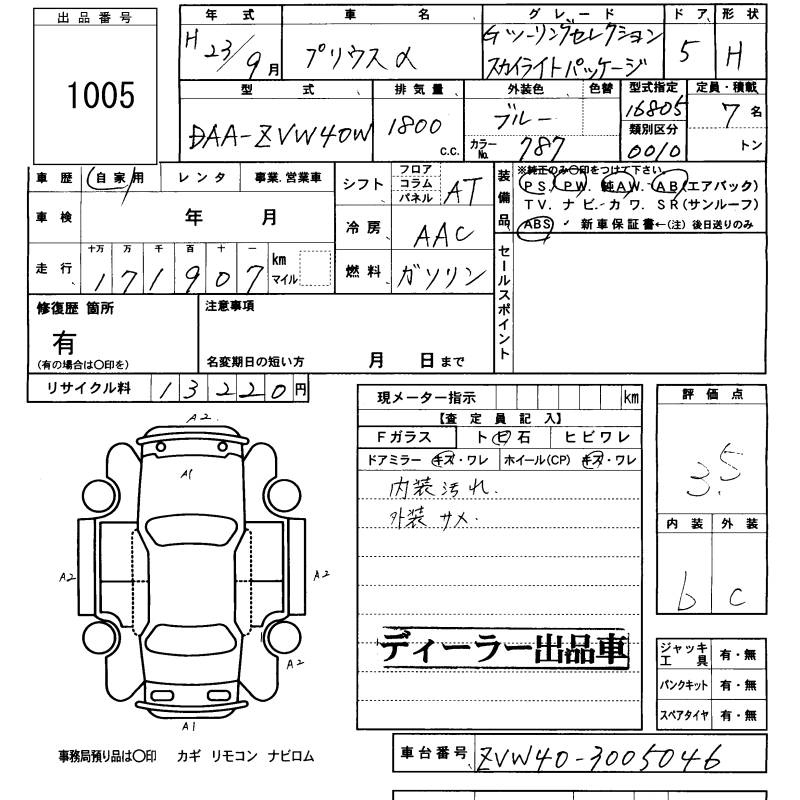 出品番号
1005
年式 車名 グレード ドア 形状
H23/9月 プリウスα Gツーリングセレクション スカイライトパッケージ 5 H
型式 排気量 外装色 色替 型式指定 定員・積載
DAA-ZVW40W 1800 c.c. ブルー 16805 7名
カラーNo. 787 類別区分 0010 トン
車歴 自家用 レンタ 事業.営業車
シフト フロア コラム パネル AT
装備品 ※純正のみ〇印をつけて下さい。
PS. PW. 純AW. AB(エアバック)
TV. ナビ. カワ. SR(サンルーフ)
ABS 新車保証書←(注)後日送りのみ
車検 年 月
冷房 AAC
走行 十万 万 千 百 十 一
171907 km マイル
燃料 ガソリン
セールスポイント
修復歴 箇所
有
(有の場合は〇印を)
注意事項
名変期日の短い方 月 日まで
リサイクル料 13220円
現メーター指示 km
【査定員記入】
Fガラス トビ石 ヒビワレ
ドアミラー キズ・ワレ ホイール(CP) キズ・ワレ
内装汚れ.
外装サメ.
評価点
3.5
内装 外装
b c
A2
A1
A2
A2
A2
A1
ディーラー出品車
ジャッキ工具 有・無
パンクキット 有・無
スペアタイヤ 有・無
事務局預り品は〇印 カギ リモコン ナビロム
車台番号 ZVW40-3005046